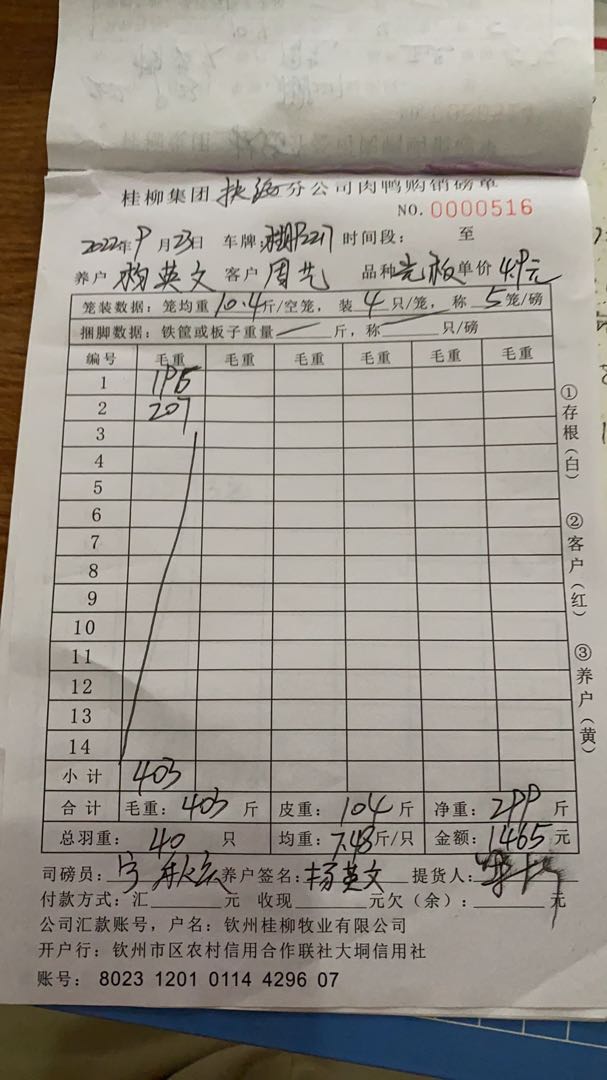 桂柳集团 分公司肉鸭购销磅单
NO. 0000516
2022年9月23日 车牌: 时间段: 至
养户 杨英文 客户 周艺 品种 光板 单价 4.9元
笼装数据: 笼均重 10.4 斤/空笼, 装 4 只/笼, 称 5 笼/磅
捆脚数据: 铁筐或板子重量 斤, 称 只/磅
编号 毛重 毛重 毛重 毛重 毛重 毛重
1 196
2 207
3
4
5
6
7
8
9
10
11
12
13
14
小计 403
合计 毛重: 403 斤 皮重: 104 斤 净重: 299 斤
总羽重: 40 只 均重: 7.48 斤/只 金额: 1465 元
司磅员: 养户签名: 杨英文 提货人:
付款方式: 汇 元 收现 元欠(余): 元
公司汇款账号, 户名: 钦州桂柳牧业有限公司
开户行: 钦州市区农村信用合作联社大垌信用社
账号: 8023 1201 0114 4296 07
①存根(白)
②客户(红)
③养户(黄)